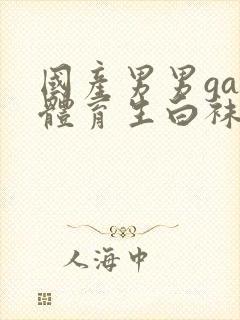 國產男男ga
體育生白袜
人海中